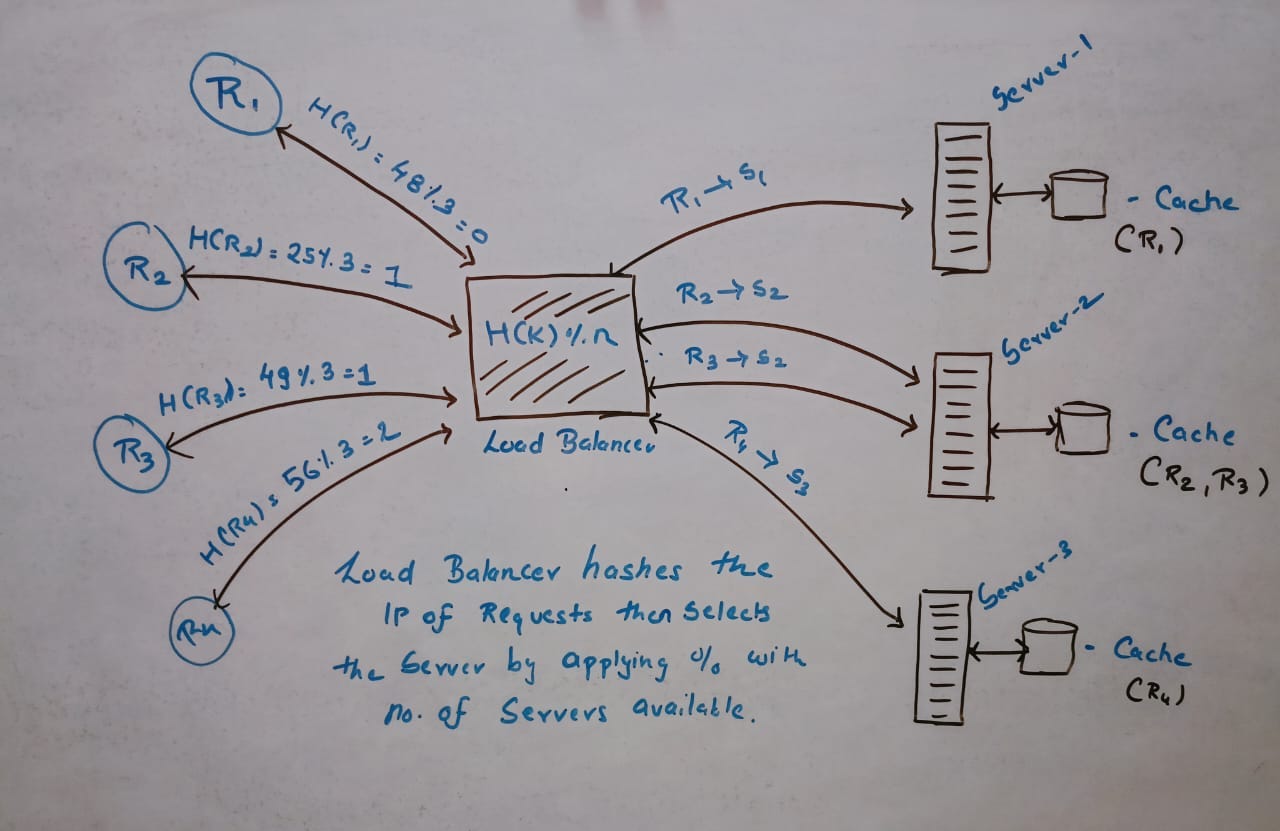 R1
H(R1) = 48%3 = 0
R2
H(R2) = 25%3 = 1
R3
H(R3) = 49%3 = 1
R4
H(R4) = 56%3 = 2
H(K)%n
Load Balancer
R1 → S1
R2 → S2
R3 → S2
R4 → S3
Server-1
- Cache
(R1)
Server-2
- Cache
(R2, R3)
Server-3
- Cache
(R4)
Load Balancer hashes the
IP of Requests then Selects
the Server by applying % with
no. of Servers available.